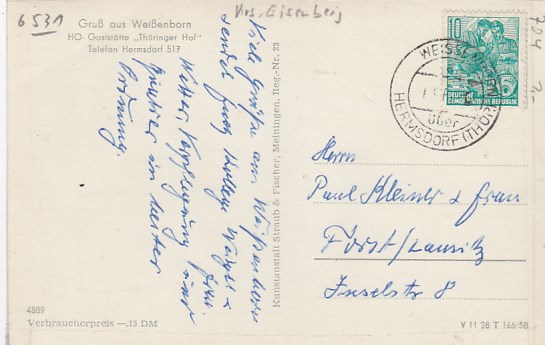 6531
Krs. Eisenberg
704
Gruß aus Weißenborn
HO-Gaststätte „Thüringer Hof"
Telefon Hermsdorf 517
Viele Grüße aus Weißenborn
sendet
Wetter, Verpflegung
Quartier in bester
Ordnung.
Kunstanstalt Straub & Fischer, Meiningen, Reg.-Nr. 23
10
DEUTSCHE
DEMOKRATISCHE REPUBLIK
WEISSENBORN
über
HERMSDORF (THÜR)
Herrn
Paul Kleinert u Frau
Forst/Lausitz
Inselstr 8
4889
Verbraucherpreis —,15 DM
V 11 28 T 165/58